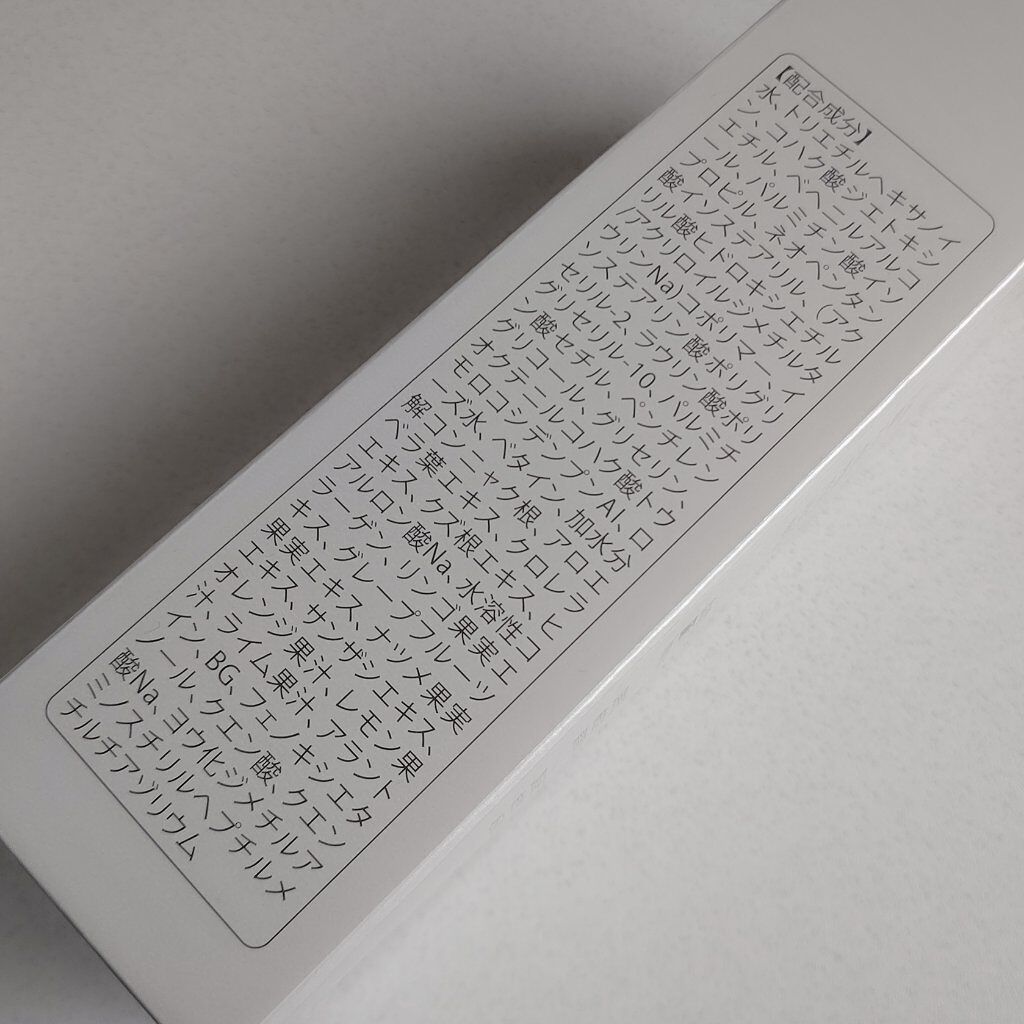 【配合成分】
水、トリエチルヘキサノイ
ン、コハク酸ジエトキシ
エチル、ベヘニルアルコ
ール、パルミチン酸イソ
プロピル、ネオペンタン
酸イソステアリル、(アク
リル酸ヒドロキシエチル
/アクリロイルジメチルタ
ウリンNa)コポリマー、イ
ソステアリン酸ポリグリ
セリル-2、ラウリン酸ポリ
グリセリル-10、パルミチ
ン酸セチル、ペンチレン
グリコール、グリセリン、
オクテニルコハク酸トウ
モロコシデンプンAl、ロ
ーズ水、ベタイン、加水分
解コンニャク根、アロエ
ベラ葉エキス、クロレラ
エキス、クズ根エキス、ヒ
アルロン酸Na、水溶性コ
ラーゲン、リンゴ果実エ
キス、グレープフルーツ
果実エキス、ナツメ果実
エキス、サンザシエキス、
オレンジ果汁、レモン果
汁、ライム果汁、アラント
イン、BG、フェノキシエタ
ノール、クエン酸、クエン
酸Na、ヨウ化ジメチルア
ミノスチリルヘプチルメ
チルチアゾリウム